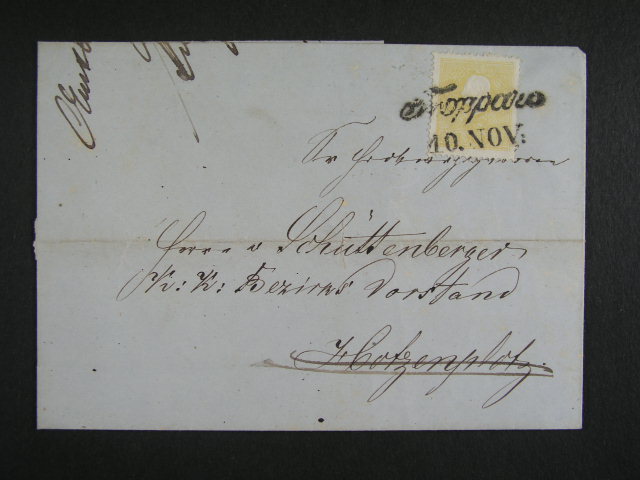 Troppau
10. NOV:
Sr Hochwohlgeboren
Herrn v Schüttenberger
K: K: Bezirks Vorstand
Hotzenplotz.